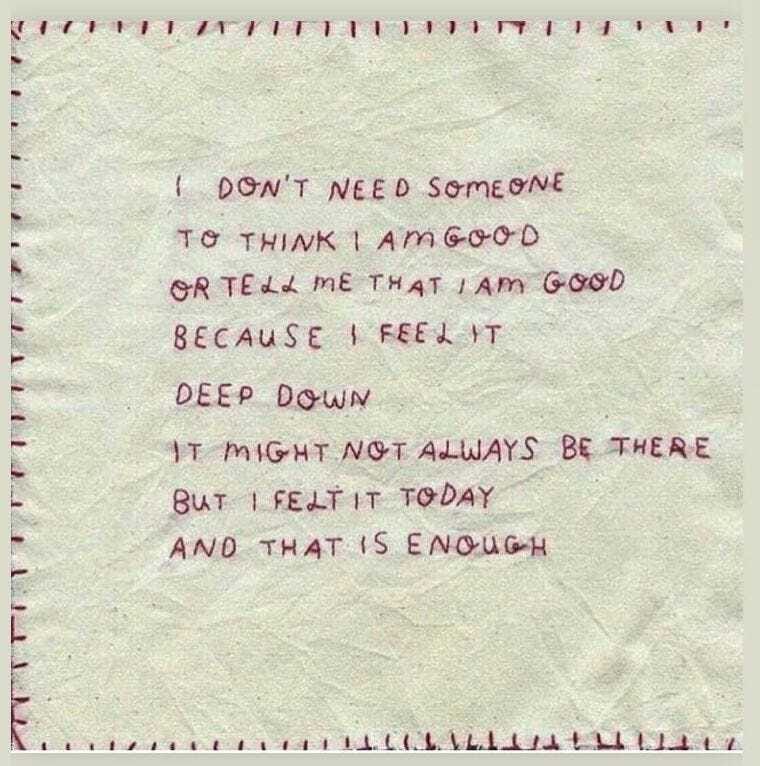 I DON'T NEED SOMEONE
TO THINK I AM GOOD
OR TELL ME THAT I AM GOOD
BECAUSE I FEEL IT
DEEP DOWN
IT MIGHT NOT ALWAYS BE THERE
BUT I FELT IT TODAY
AND THAT IS ENOUGH